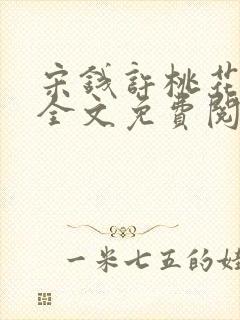 宋錢許桃花
全文免費閱
一米七五的娃